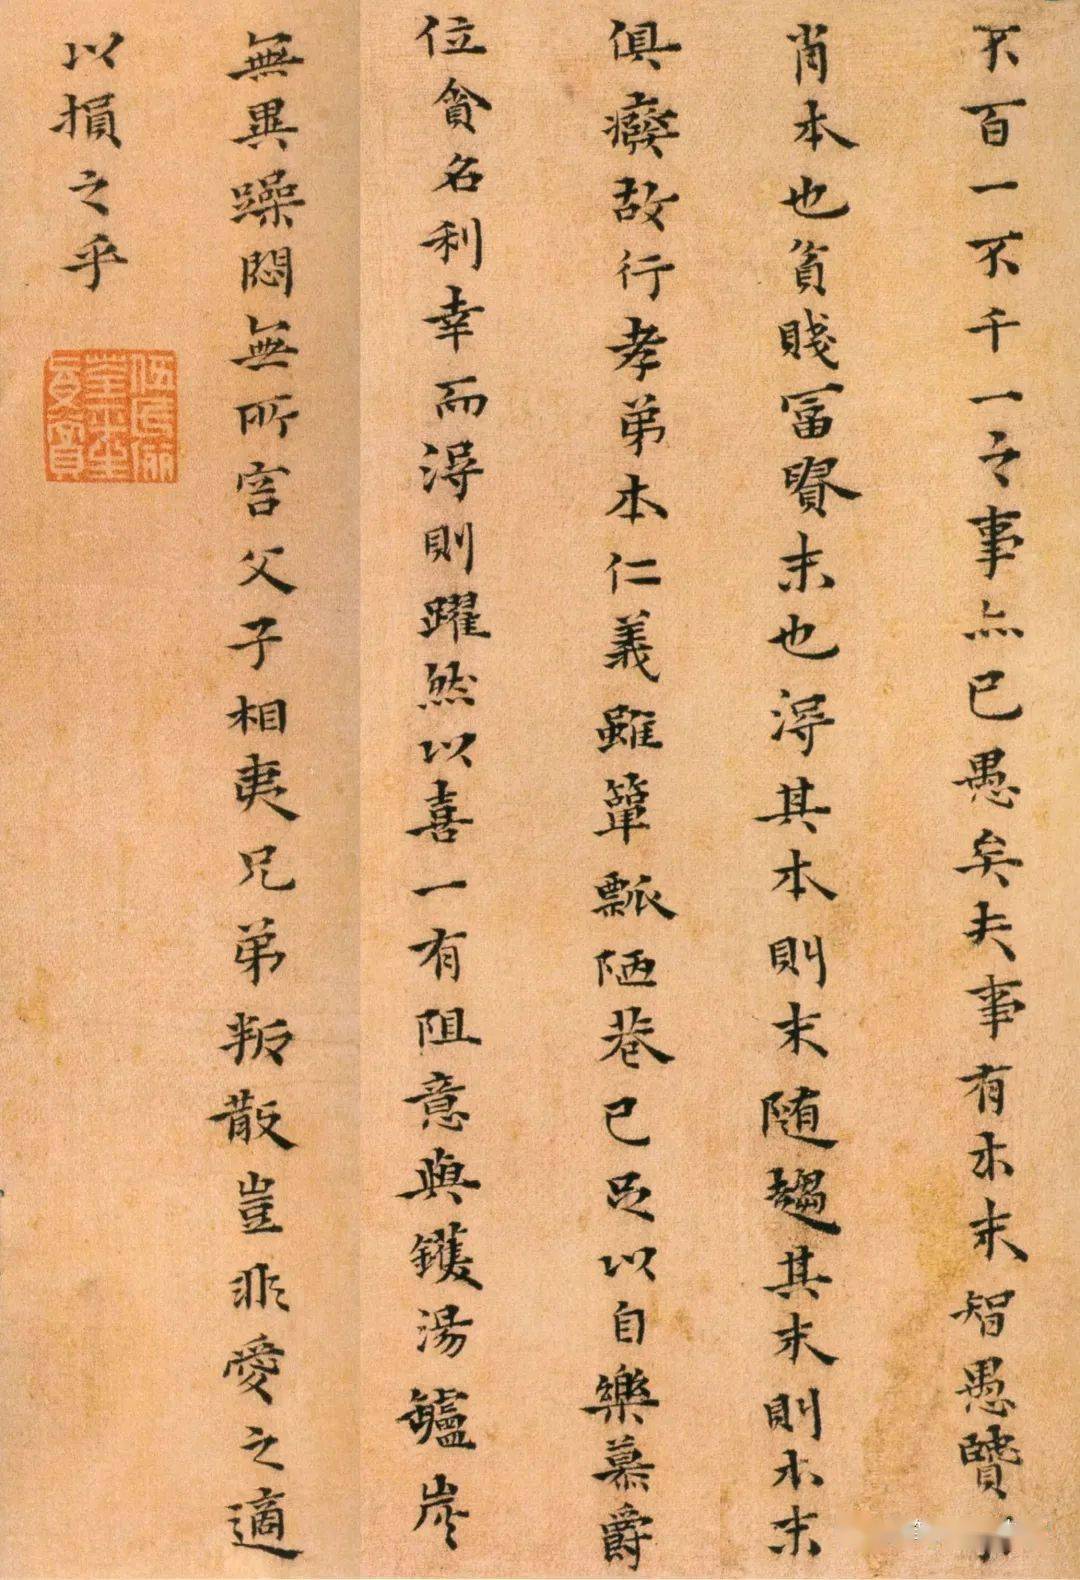 不百一不千一之事亦已愚矣夫事有本末智愚賢不
肖本也貧賤冨貴末也得其本則末随趨其末則本末
俱癈故行孝弟本仁義雖簞瓢陋巷已足以自樂慕爵
位貪名利幸而得則躍然以喜一有阻意與鑊湯鑪炭
無異躁悶無所容父子相夷兄弟叛散豈非愛之適
以損之乎